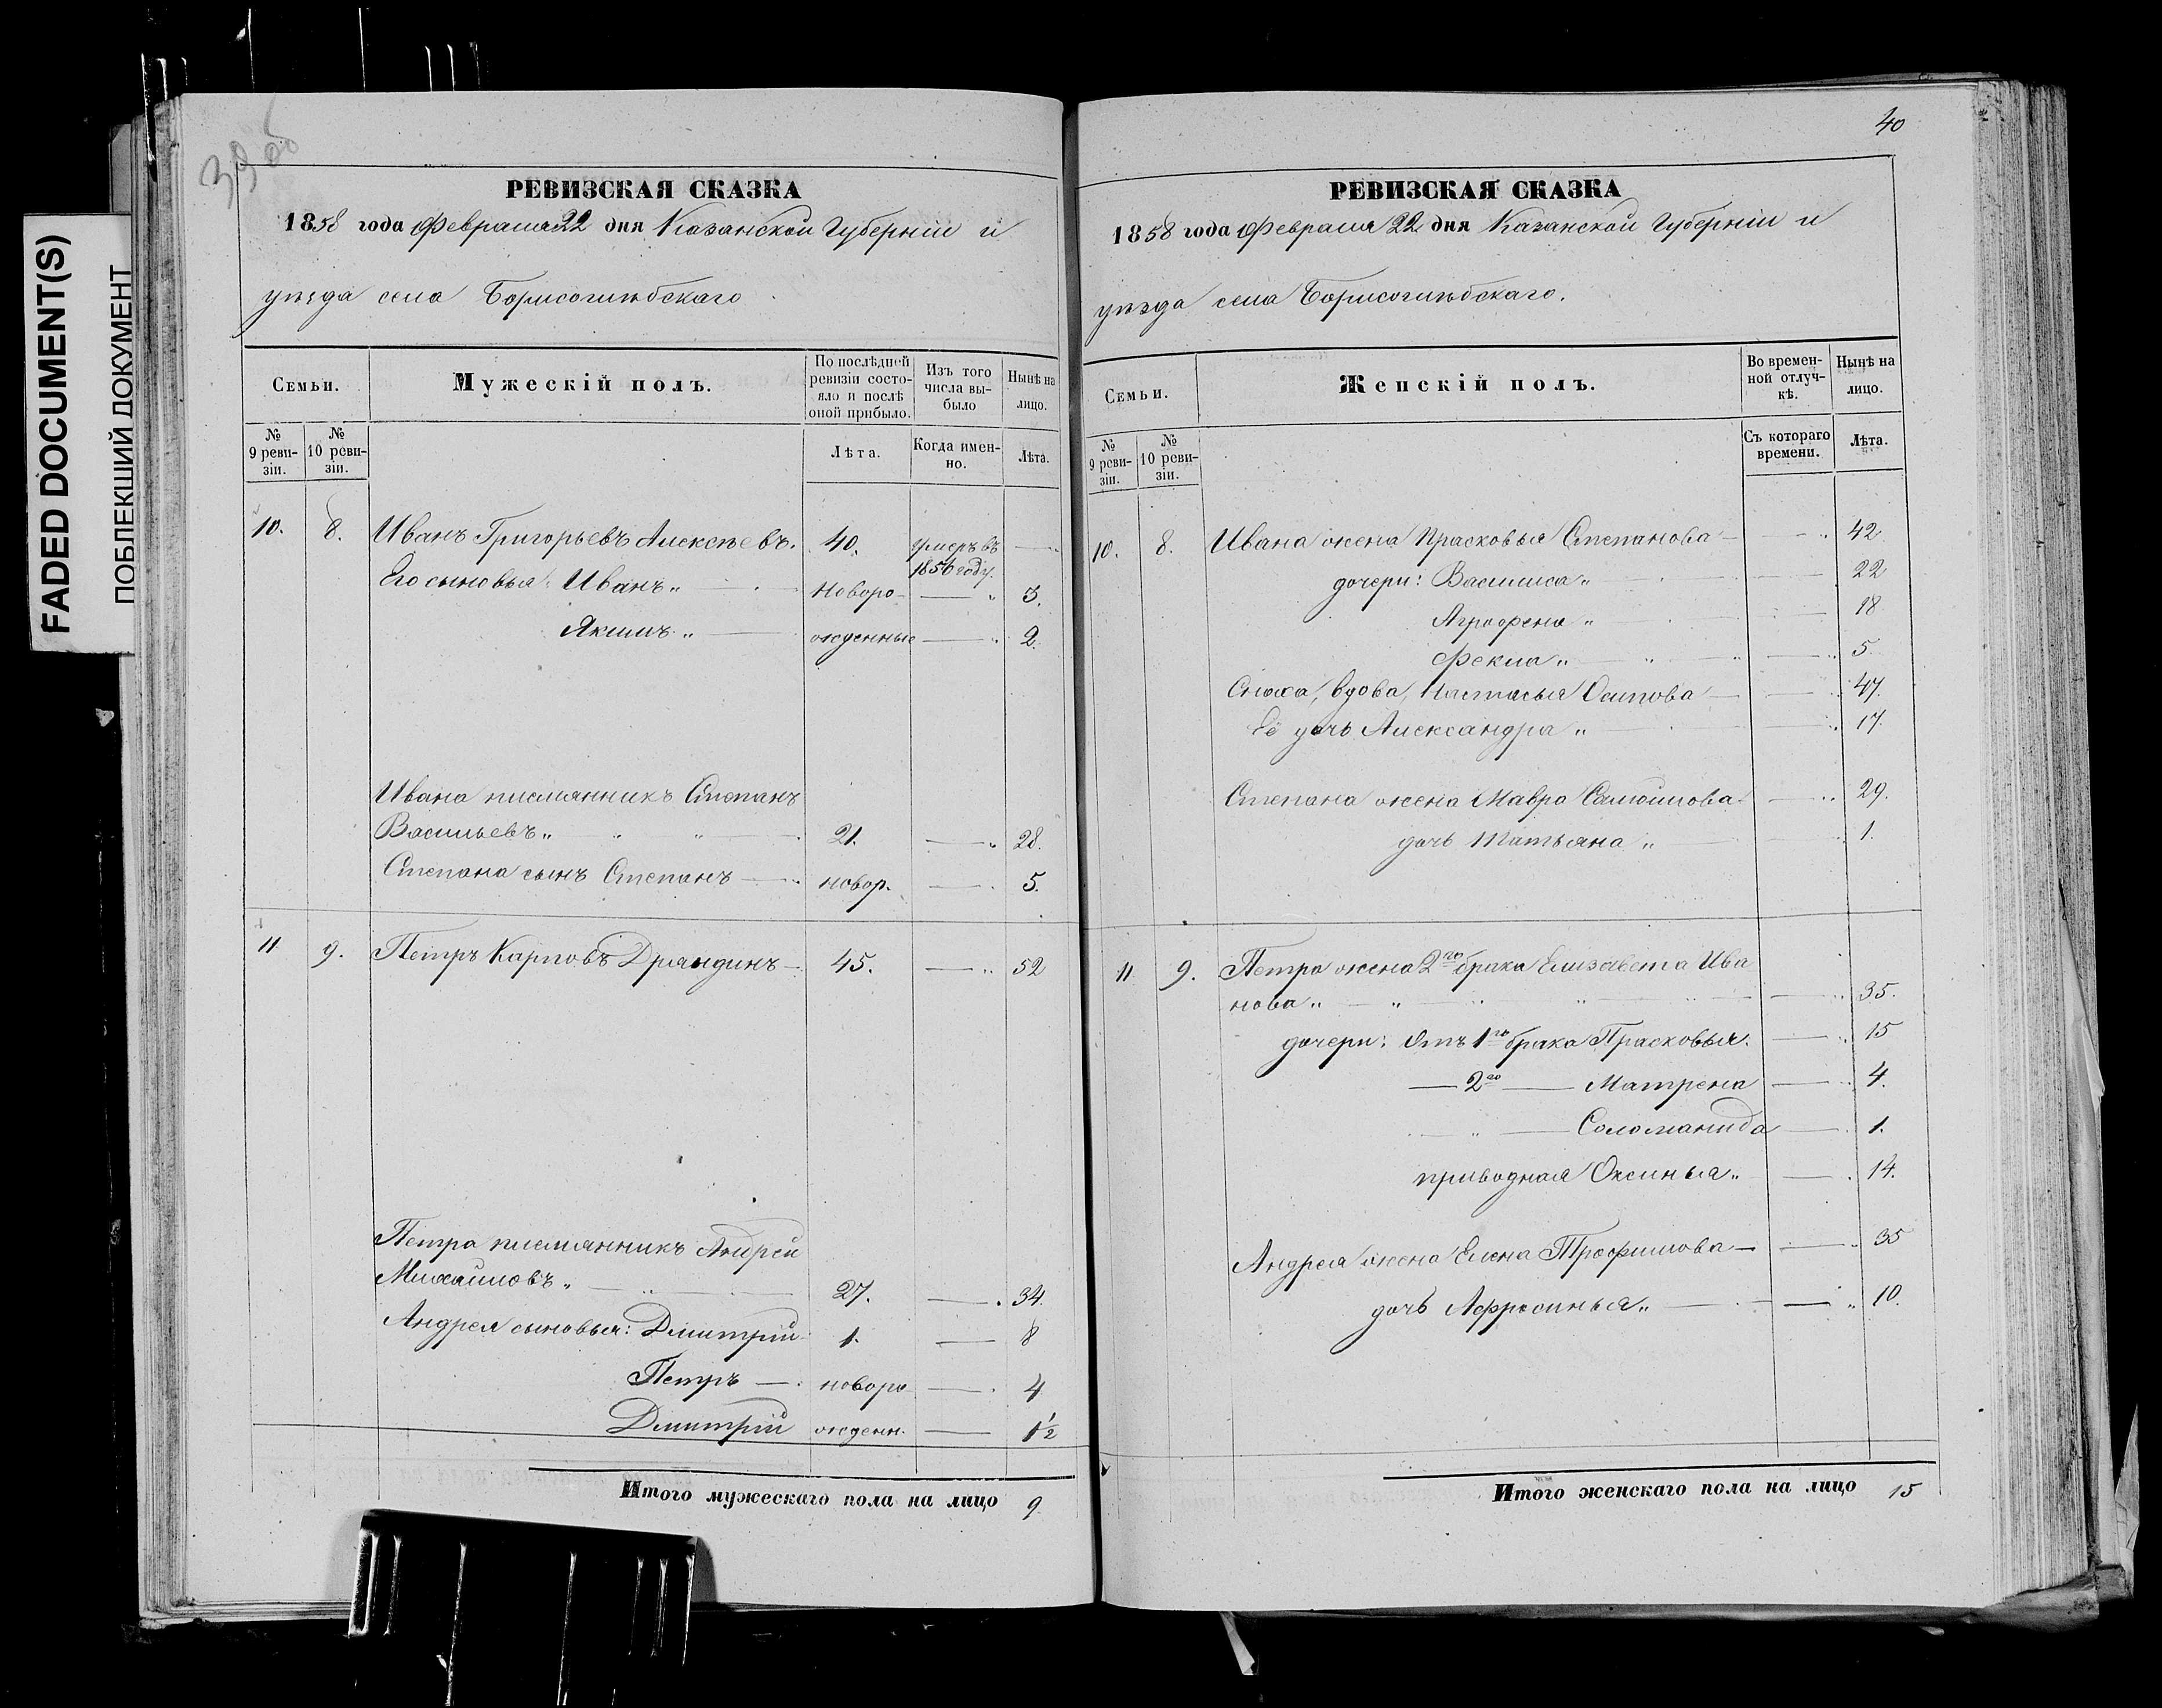 FADED DOCUMENT(S)
ПОБЛЕКШИЙ ДОКУМЕНТ
39 об
РЕВИЗСКАЯ СКАЗКА
1858 года Февраля 22 дня Казанской Губерніи и
уѣзда села Борисоглѣбскаго
Семьи.
Мужескій полъ.
По послѣдней ревизіи состояло и послѣ оной прибыло.
Изъ того числа выбыло
Нынѣ на лицо.
№ 9 ревизіи.
№ 10 ревизіи.
Лѣта.
Когда именно.
Лѣта.
10. 8. Иванъ Григорьевъ Алексѣевъ. 40. умеръ въ 1856 году. —
Его сыновья: Иванъ „ — новоро- — „ 3.
Якимъ „ — жденные — „ 2.
Ивана племянникъ Степанъ
Васильевъ „ „ „ 21. — „ 28.
Степана сынъ Степанъ — новор. — 5.
11 9. Петръ Карповъ Дряндинъ — 45. — „ 52
Петра племянникъ Андрей
Михайловъ „ — „ 27. — 34.
Андрея сыновья: Дмитрій 1. — 8
Петръ — новоро — 4
Дмитрій жденн. — 1½
Итого мужескаго пола на лицо 9
40
РЕВИЗСКАЯ СКАЗКА
1858 года Февраля 22 дня Казанской Губерніи и
уѣзда села Борисоглѣбскаго.
Семьи.
Женскій полъ.
Во временной отлучкѣ.
Нынѣ на лицо.
№ 9 ревизіи.
№ 10 ревизіи.
Съ котораго времени.
Лѣта.
10. 8. Ивана жена Прасковья Степанова — 42
дочери: Василиса „ — 22
Аграфена „ — 18
Фекла „ — 5
Сноха, вдова, Настасья Осипова — 47.
Её дочь Александра „ — 17.
Степана жена Мавра Самойлова — 29.
дочь Татьяна „ — 1.
11 9. Петра жена 2го брака Елизавета Ива
нова „ — „ 35.
дочери: Отъ 1го брака Прасковья. — 15
— 2го — Матрена — 4.
— „ — Соломанида — 1.
приводная Оксинья „ — 14.
Андрея жена Елена Трофимова — 35
дочь Афросинья „ — 10.
Итого женскаго пола на лицо 15